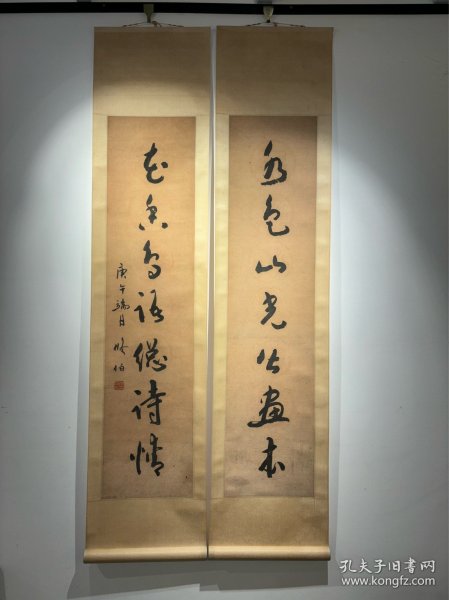 水色山光皆畫本
花香鳥語總詩情
庚午端月
孔夫子旧书网
www.kongfz.com